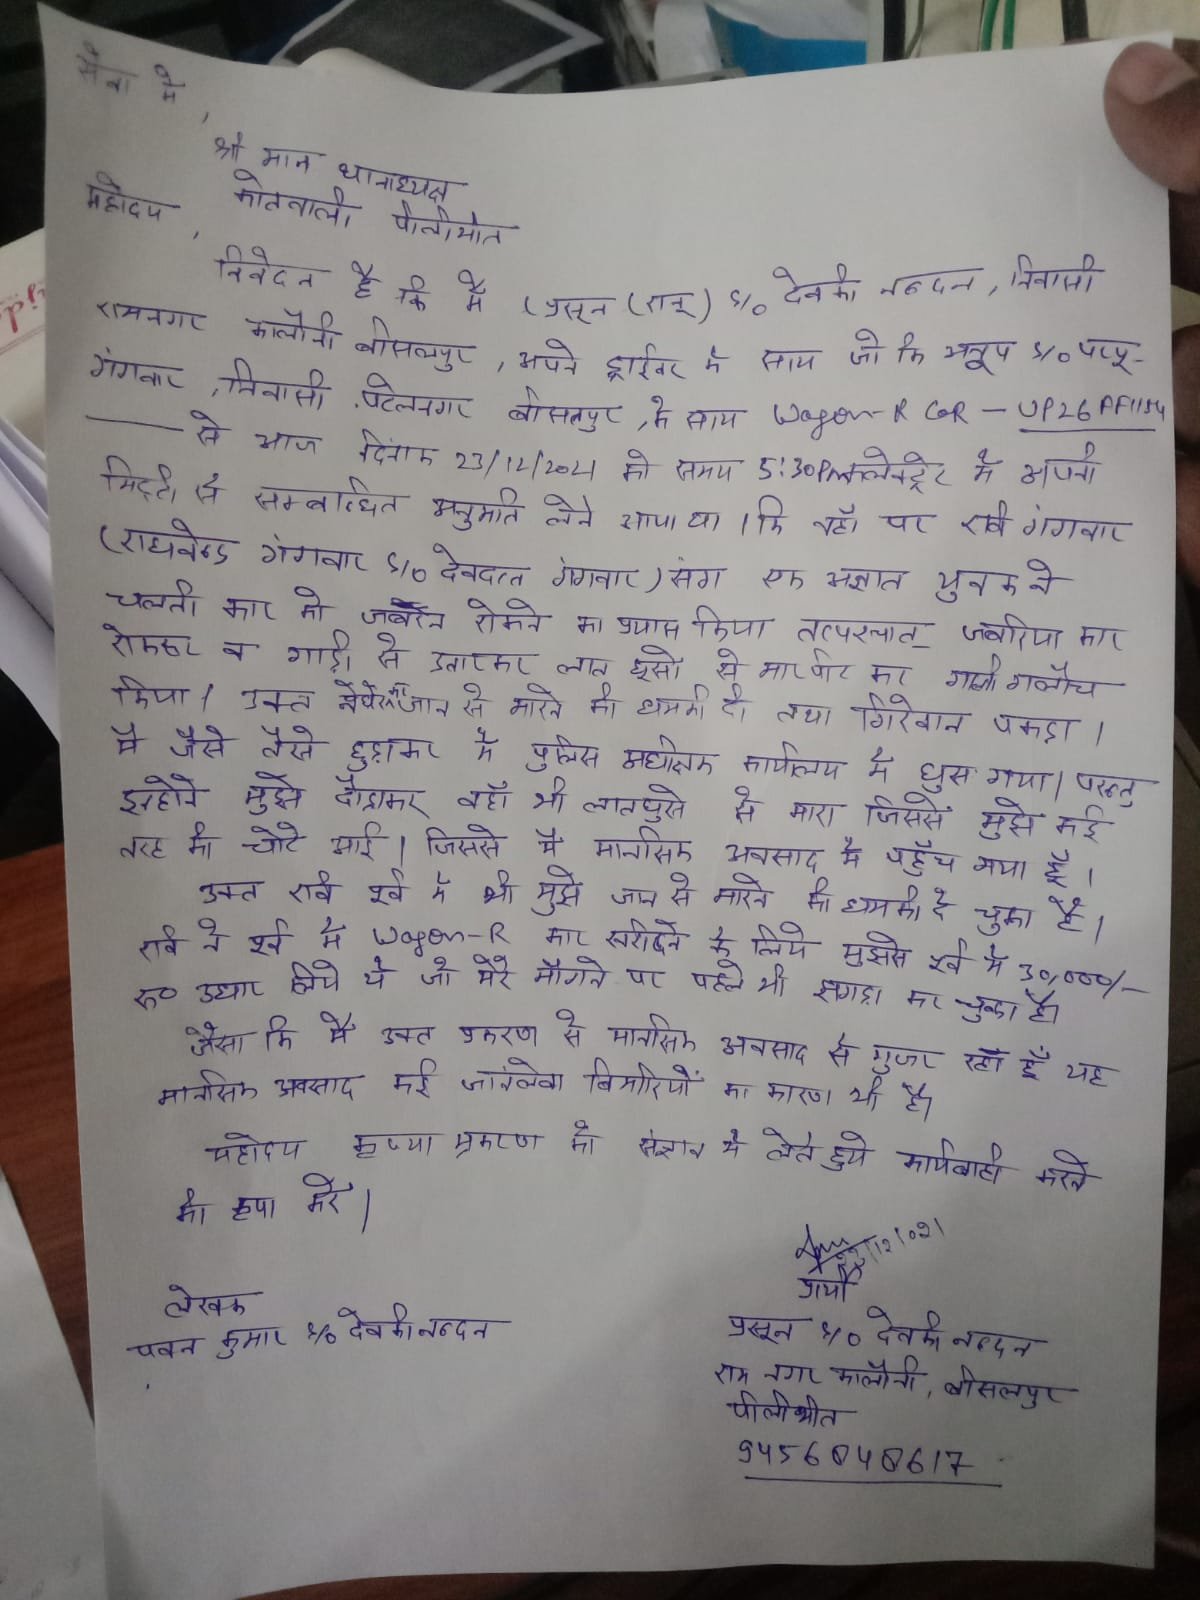 सेवा में,
श्री मान थानाध्यक्ष
कोतवाली पीलीभीत
महोदय,
निवेदन है कि मैं (प्रसून (राजू) S/o देवकी नन्दन, निवासी
रामनगर कालौनी बीसलपुर, अपने ड्राईवर के साथ जो कि अनूप S/o पप्पू-
गंगवार, निवासी पटेलनगर बीसलपुर, के साथ Wagon-R CAR - UP26
से आज दिनांक 23/12/2021 को समय 5:30PM कलेक्ट्रेट में अपनी
मिट्टी से सम्बन्धित अनुमति लेने आया था। कि वहाँ पर रवि गंगवार
(राघवेन्द्र गंगवार S/o देवदत्त गंगवार) संग एक अज्ञात युवक ने
चलती कार को जबरन रोकने का प्रयास किया तत्पश्चात जबरिया कार
रोककर व गाड़ी से उतारकर लात घूसो से मारपीट कर गाली गलौच
किया। उक्त जान से मारने की धमकी दी तथा गिरेवान पकड़ा।
मै जैसे तैसे छुड़ाकर मैं पुलिस अधीक्षक कार्यालय में घुस गया। परन्तु
इन्होने मुझे दौड़ाकर वहाँ भी लातघुसे से मारा जिससे मुझे कई
तरह की चोटे आई। जिससे मैं मानसिक अवसाद में पहुँच गया हूँ।
उक्त रवि पूर्व में भी मुझे जान से मारने की धमकी दे चुका है।
रवि ने पूर्व में Wagon-R कार खरीदने के लिये मुझसे पूर्व में 30,000/-
रू० उधार लिये थे जो मेरे माँगने पर पहले भी झगड़ा कर चुका है।
जैसा कि मैं उक्त प्रकरण से मानसिक अवसाद से गुजर रहाँ हूँ यह
मानसिक अवसाद कई जानलेवा बिमारियों का कारण भी है।
महोदय कृप्या प्रकरण को संज्ञान में लेते हुये कार्यवाही करने
की कृपा करें।
प्रार्थी
लेखक
पवन कुमार S/o देवकीनन्दन
प्रसून S/o देवकी नन्दन
राम नगर कालौनी, बीसलपुर
पीलीभीत
9456040617